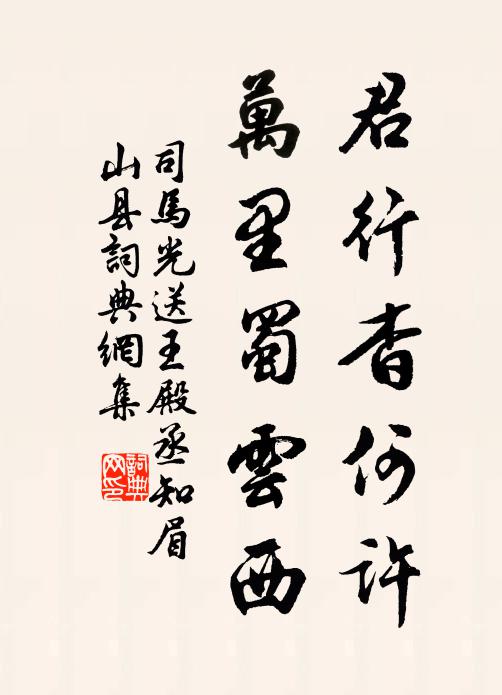 君行杳何許
萬里蜀雲西
司馬光送王殿丞知眉
山县詞典網集
詞典
网印